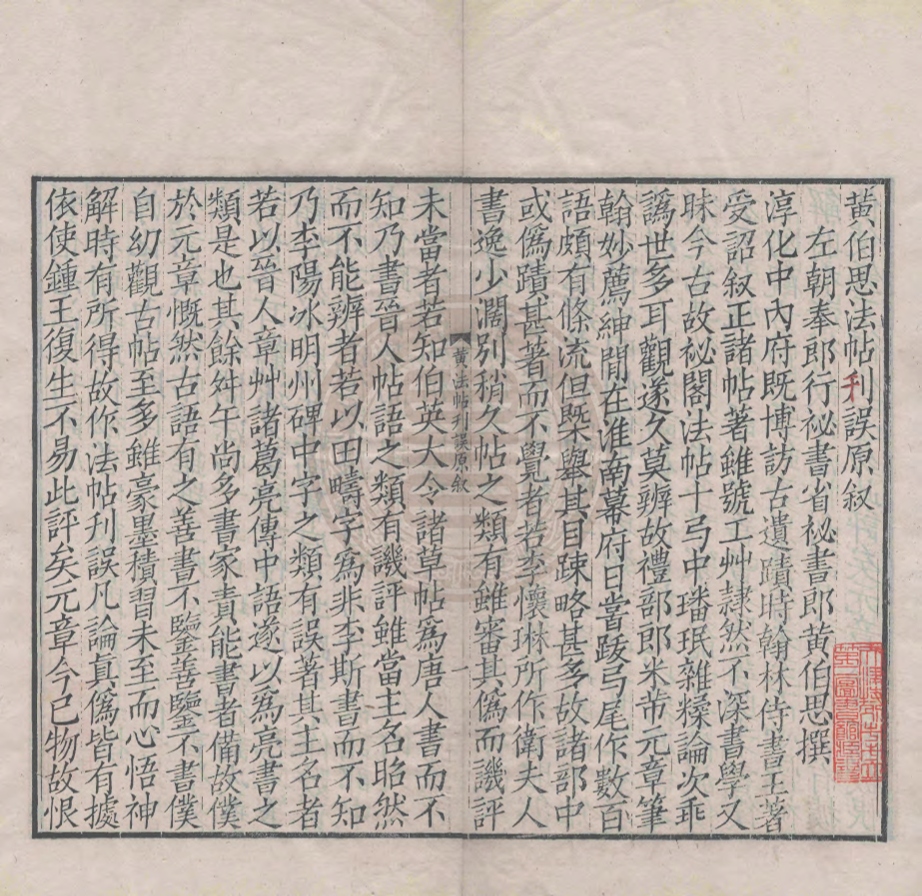 黄伯思法帖刋誤原叙
左朝奉郎行祕書省祕書郎黄伯思撰
淳化中內府既博訪古遺蹟時翰林侍書王著
受詔叙正諸帖著雖號工艸隷然不深書學又
昧今古故祕閣法帖十弓中璠珉雜糅論次乖
譌世多耳觀遂久莫辨故禮部郎米芾元章筆
翰妙薦紳閒在淮南幕府日嘗跋弓尾作數百
語頗有條流但槩舉其目踈略甚多故諸部中
或僞蹟甚著而不覺者若李懷琳所作衛夫人
書逸少濶別稍久帖之類有雖審其僞而譏評
黄法帖刋誤原叙
一
未當者若知伯英大令諸草帖爲唐人書而不
知乃書晉人帖語之類有譏評雖當主名昭然
而不能辨者若以田疇字爲非李斯書而不知
乃李陽冰明州碑中字之類有誤著其主名者
若以晉人章艸諸葛亮傳中語遂以爲亮書之
類是也其餘舛午尚多書家責能書者備故僕
於元章慨然古語有之善書不鑒善鑒不書僕
自幼觀古帖至多雖豪墨積習未至而心悟神
解時有所得故作法帖刊誤凡論真僞皆有據
依使鍾王復生不易此評矣元章今已物故恨